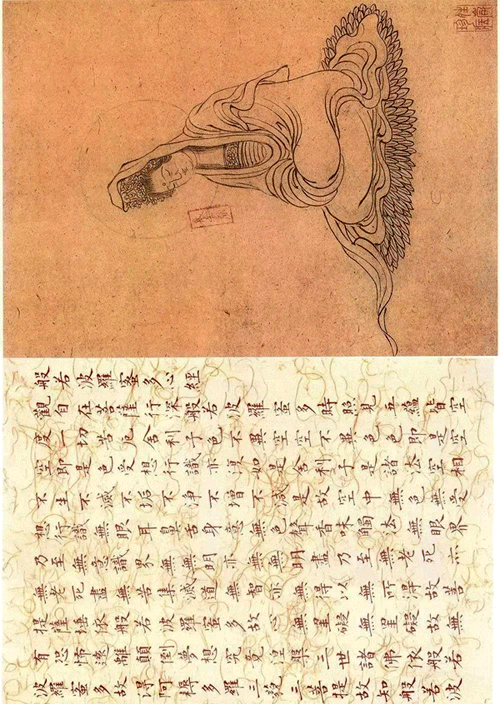 般若波羅蜜多心經
觀自在菩薩行深般若波羅蜜多時照見五蘊皆空
度一切苦厄舍利子色不異空空不異色色即是空
空即是色受想行識亦復如是舍利子是諸法空相
不生不滅不垢不淨不增不減是故空中無色無受
想行識無眼耳鼻舌身意無色聲香味觸法無眼界
乃至無意識界無無明亦無無明盡乃至無老死亦
無老死盡無苦集滅道無智亦無得以無所得故菩
提薩埵依般若波羅蜜多故心無罣礙無罣礙故無
有恐怖遠離顛倒夢想究竟涅槃三世諸佛依般若
波羅蜜多故得阿耨多羅三藐三菩提故知般若波